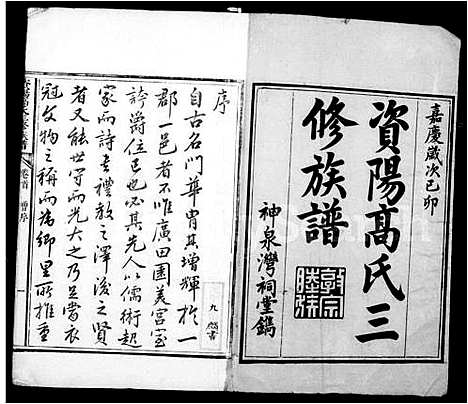 嘉慶歲次己卯
資陽髙氏三
修族譜
神泉灣祠堂鐫
敦宗
睦族
序
自古名門華胄其增輝於一
郡一邑者不唯廣田園美宮室
誇爵位已也必其先人以儒術起
家而詩書禮教之澤後之賢
者又能世守而光大之乃足當衣
冠文物之稱而為鄉里所推重
卷首
序
一